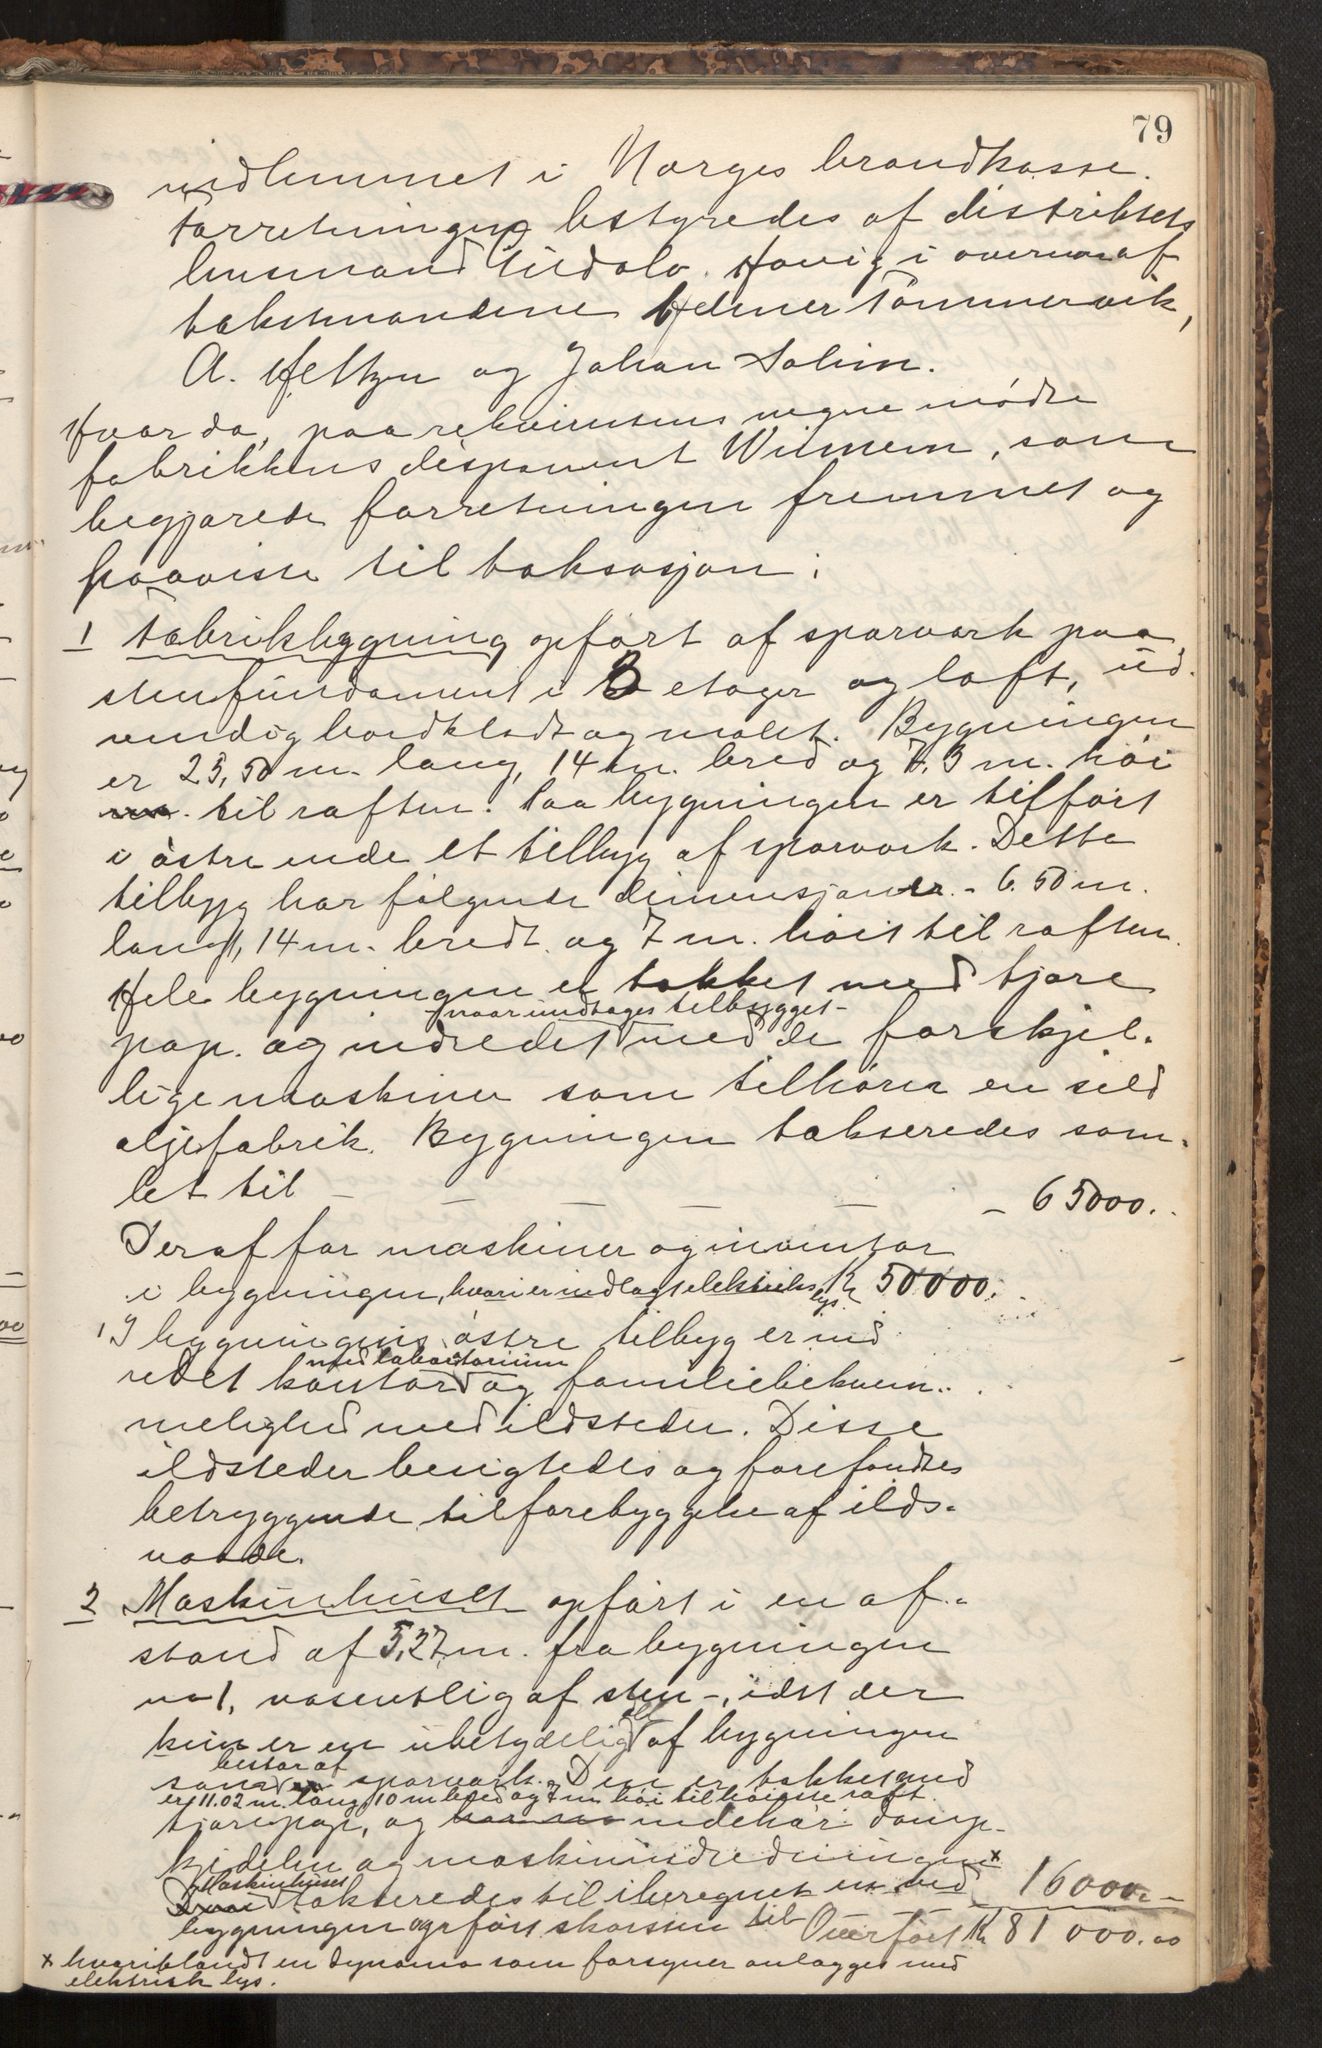 79
indlemmet i Norges brandkasse.
Forretningen bestyredes af distriktets
lensmand Hildalo. Hovig i overvær af
takstmændene Helmer Tømmervik,
A. Meltzer og Johan Solim.
Hvor da, paa rekvirentens vegne mødte
fabrikkens disponent Wiimem, som
begjærede forretningen fremmet og
paaviste til taksasjon:
1 Fabrikbygning, opført af sparværk paa
stenfundament i 3 etager og loft, ud-
vendig bordklædt og malet. Bygningen
er 23,50 m. lang, 14 m. bred og 7.3 m. høi
til raften. Paa bygningen er tilført
i østre ende et tilbyg af sparværk. Dette
tilbyg har følgende dimensjoner. - 6.50 m.
langt, 14 m. bredt og 7 m. høit til raften.
Hele bygningen er tækket med tjære
- naar undtages tilbygget -
pap. og indredet med de forskjel-
lige maskiner som tilhører en sild
oljefabrik. Bygningen takseredes sam-
let til - - - - - 65000..
Deraf for maskiner og inventar
i bygningen, hvori er indlagt elektriks lys. Kr 50000.
I bygningens østre tilbyg er ind
med laboratorium
redet kontor og familiebekvem-
melighed med ildsteder. Disse
ildsteder besigtedes og forefandtes
betryggende til forebyggelse af ilds-
vaade.
2 Maskinhuset opført i en af-
stand af 5,27 m. fra bygningen
no 1, væsentlig af sten -, idet der
kun er en ubetydelig del af bygningen
bestar af
som sparværk. Den er tækket med
er 11.02 m. lang, 10 m bred og 7 m. høi til høieste raft.
tjærepap, og har indehar damp-
kjedelen og maskinindredningen x
Maskinhuset
takseredes til iberegnet en ved - 16000.-
bygningen opført skorsten til Overført Kr 81 000.00
x hvoriblandt en dynamo som forsyner anlægget med
elektrisk lys.